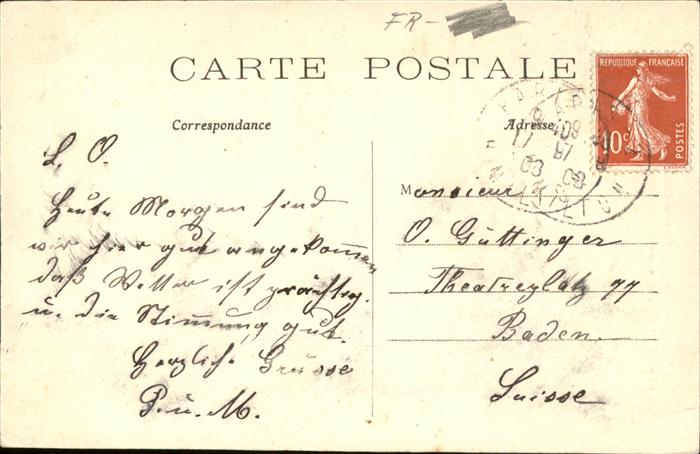 FR-
CARTE POSTALE
Correspondance
Adresse
REPUBLIQUE FRANÇAISE
10c
POSTES
L. O.
Heute Morgen sind
wir hier gut angekommen
daß Wetter ist prächtig.
u. die Stimmung gut.
Herzliche Grüsse
P. u. M.
Monsieur
O. Güttinger
Theaterplatz 77
Baden.
Suisse